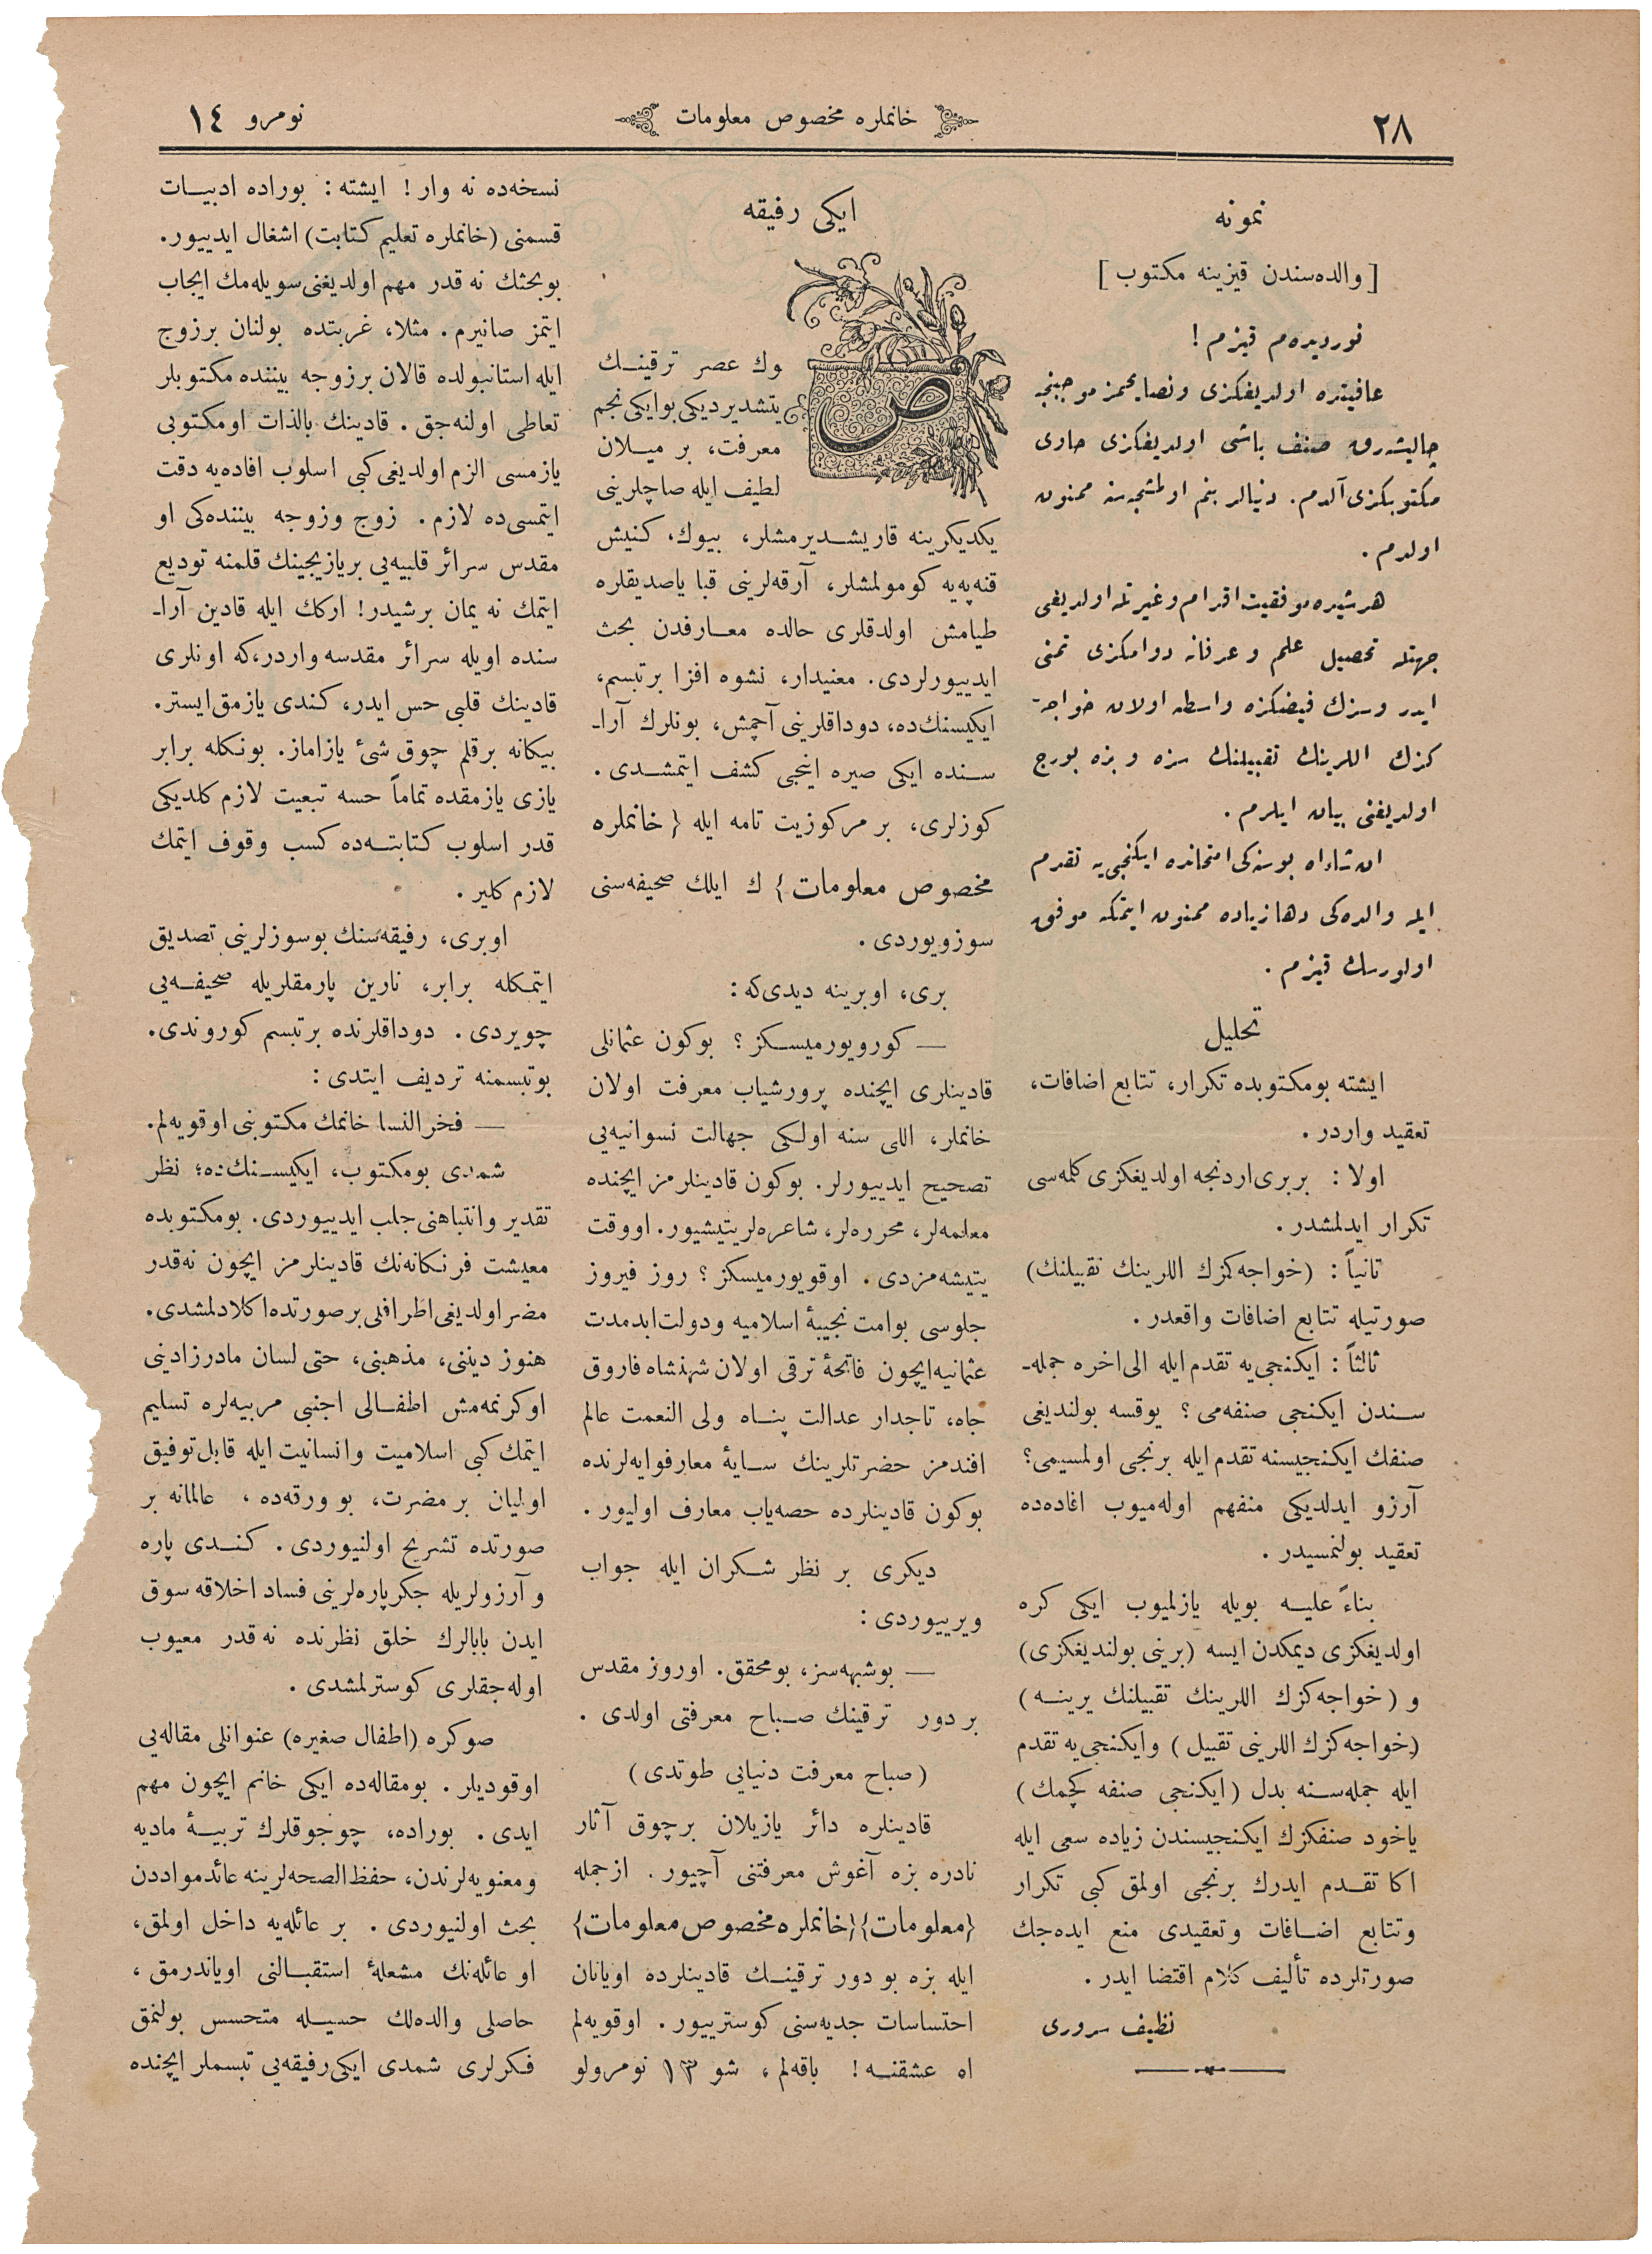 ٢٨
خانملره مخصوص معلومات
نومرو ١٤
نمونه
[ والده‌سندن قیزینه مكتوب ]
نوردیده‌م قیزم !
عافیتده اولدیغكزی ونصایحمز موجبنجه
چالیشه‌رق صنف باشی اولدیغكزی حاوی
مكتوبكزی آلدم. دنیالر بنم اولمشجه‌سنه ممنون
اولدم .
هر شیده موفقیت اقدام و غیرتله اولدیغی
جهتله تحصیل علم و عرفانه دوامكزی تمنی
ایدر وسزك فیضكزه واسطه اولان خواجه‌-
كزك اللرینك تقبیلنك سزه و بزه بورج
اولدیغنی بیان ایلرم .
ان شاءالله بو سنه‌كی امتحانده ایكنجی‌یه تقدم
ایله والده‌كی دها زیاده ممنون ایتمكه موفق
اولورسك قیزم .
تحلیل
ایشته بومكتوبده تكرار، تتابع اضافات،
تعقید واردر .
اولا : بربری اردنجه اولدیغكزی كله‌سی
تكرار ایدلمشدر .
ثانیاً : (خواجه‌كزك اللرینك تقبیلنك)
صورتیله تتابع اضافات واقعدر .
ثالثاً : ایكنجی‌یه تقدم ایله الی‌اخره جمله‌-
سندن ایكنجی صنفه‌می ؟ یوقسه بولندیغی
صنفك ایكنجیسنه تقدم ایله برنجی اولمسیمی؟
آرزو ایدلدیكی منفهم اوله‌میوب افاده‌ده
تعقید بولنمسیدر .
بناءً علیه بویله یازلمیوب ایكی كره
اولدیغكزی دیمكدن ایسه (برینی بولندیغكزی)
و (خواجه‌كزك اللرینك تقبیلنك یرینه)
(خواجه‌كزك اللرینی تقبیل) وایكنجی‌یه تقدم
ایله جمله‌سنه بدل (ایكنجی صنفه كچمك)
یاخود صنفكزك ایكنجیسندن زیاده سعی ایله
اكا تقدم ایدرك برنجی اولمق كبی تكرار
وتتابع اضافات وتعقیدی منع ایده‌جك
صورتلرده تألیف كلام اقتضا ایدر .
نظیف سروری
ایكی رفیقه
ص
وك عصر ترقینك
یتشدیردیكی بوایكی نجم
معرفت، بر میلان
لطیف ایله صاچلرینی
یكدیكرینه قاریشدیرمشلر، بیوك، كنیش
قنه‌په‌یه كومولمشلر، آرقه‌لرینی قبا یاصدیقلره
طیامش اولدقلری حالده معارفدن بحث
ایدییورلردی. معنیدار، نشوه افزا برتبسم،
ایكیسنك‌ده، دوداقلرینی آچمش، بونلرك آرا-
سنده ایكی صیره اینجی كشف ایتمشدی .
كوزلری، بر مركوزیت تامه ایله {خانملره
مخصوص معلومات} ك ایلك صحیفه‌سنی
سوزویوردی .
بری، اوبرینه دیدی‌كه :
— كورویورمیسكز ؟ بوكون عثمانلی
قادینلری ایچنده پرورشیاب معرفت اولان
خانملر، اللی سنه اولكی جهالت نسوانیه‌یی
تصحیح ایدییورلر. بوكون قادینلرمز ایچنده
معلمه‌لر، محرره‌لر، شاعره‌لر یتیشیور. اووقت
یتیشه‌مزدی . اوقویورمیسكز ؟ روز فیروز
جلوسی بوامت نجیبهٔ اسلامیه ودولت ابدمدت
عثمانیه‌ایچون فاتحهٔ ترقی اولان شهنشاه فاروق
جاه، تاجدار عدالت پناه ولی النعمت عالم
افندمز حضرتلرینك سایهٔ معارفوایه‌لرنده
بوكون قادینلرده حصه‌یاب معارف اولیور .
دیكری بر نظر شكران ایله جواب
ویرییوردی :
— بوشبهه‌سز، بومحقق. اوروز مقدس
بر دور ترقینك صباح معرفتی اولدی .
(صباح معرفت دنیایی طوتدی)
قادینلره دائر یازیلان برچوق آثار
نادره بزه آغوش معرفتنی آچیور. ازجمله
{معلومات}{خانملره مخصوص معلومات}
ایله بزه بو دور ترقینك قادینلرده اویانان
احتساسات جدیه‌سنی كوسترییور. اوقویه‌لم
اه عشقنه ! باقه‌لم، شو ١٣ نومرولو
نسخه‌ده نه وار ! ایشته : بوراده ادبیات
قسمنی (خانملره تعلیم كتابت) اشغال ایدییور.
بوبحثك نه قدر مهم اولدیغنی سویله‌مك ایجاب
ایتمز صانیرم. مثلا، غربتده بولنان برزوج
ایله استانبولده قالان برزوجه بیننده مكتوبلر
تعاطی اولنه‌جق . قادینك بالذات اومكتوبی
یازمسی الزم اولدیغی كبی اسلوب افاده‌یه دقت
ایتمسی‌ده لازم . زوج وزوجه بیننده‌كی او
مقدس سرائر قلبیه‌یی بریازیجینك قلمنه تودیع
ایتمك نه یمان برشیدر! اركك ایله قادین آرا-
سنده اویله سرائر مقدسه واردر، كه اونلری
قادینك قلبی حس ایدر، كندی یازمق ایستر.
بیكانه برقلم چوق شیٔ یازاماز. بونكله برابر
یازی یازمقده تماماً حسه تبعیت لازم كلدیكی
قدر اسلوب كتابتده كسب وقوف ایتمك
لازم كلیر .
اوبری، رفیقه‌سنك بوسوزلرینی تصدیق
ایتمكله برابر، نارین پارمقلریله صحیفه‌یی
چویردی . دوداقلرنده برتبسم كوروندی.
بوتبسمنه تردیف ایتدی :
— فخر النسا خانمك مكتوبنی اوقویه‌لم.
شمدی بومكتوب، ایكیسنك‌ده؛ نظر
تقدیر وانتباهنی جلب ایدییوردی. بومكتوبده
معیشت فرنكانه‌نك قادینلرمز ایچون نه‌قدر
مضر اولدیغی اطرافلی برصورتده اكلادلمشدی.
هنوز دیننی، مذهبنی، حتی لسان مادرزادینی
اوكرنمه‌مش اطفالی اجنبی مربیه‌لره تسلیم
ایتمك كبی اسلامیت وانسانیت ایله قابل توفیق
اولمیان بر مضرت، بو ورقه‌ده ، عالمانه بر
صورتده تشریح اولنیوردی. كندی پاره
و آرزولریله جكرپاره‌لرینی فساد اخلاقه سوق
ایدن بابالرك خلق نظرنده نه قدر معیوب
اوله‌جقلری كوسترلمشدی .
صوكره (اطفال صغیره) عنوانلی مقاله‌یی
اوقودیلر . بومقاله‌ده ایكی خانم ایچون مهم
ایدی. بوراده، چوجوقلرك تربیهٔ مادیه
ومعنویه‌لرندن، حفظ الصحه‌لرینه عائد مواددن
بحث اولنیوردی . بر عائله‌یه داخل اولمق،
او عائله‌نك مشعلهٔ استقبالنی اویاندرمق ،
حاصلی والده‌لك حسیله متحسس بولنمق
فكرلری شمدی ایكی رفیقه‌یی تبسملر ایچنده